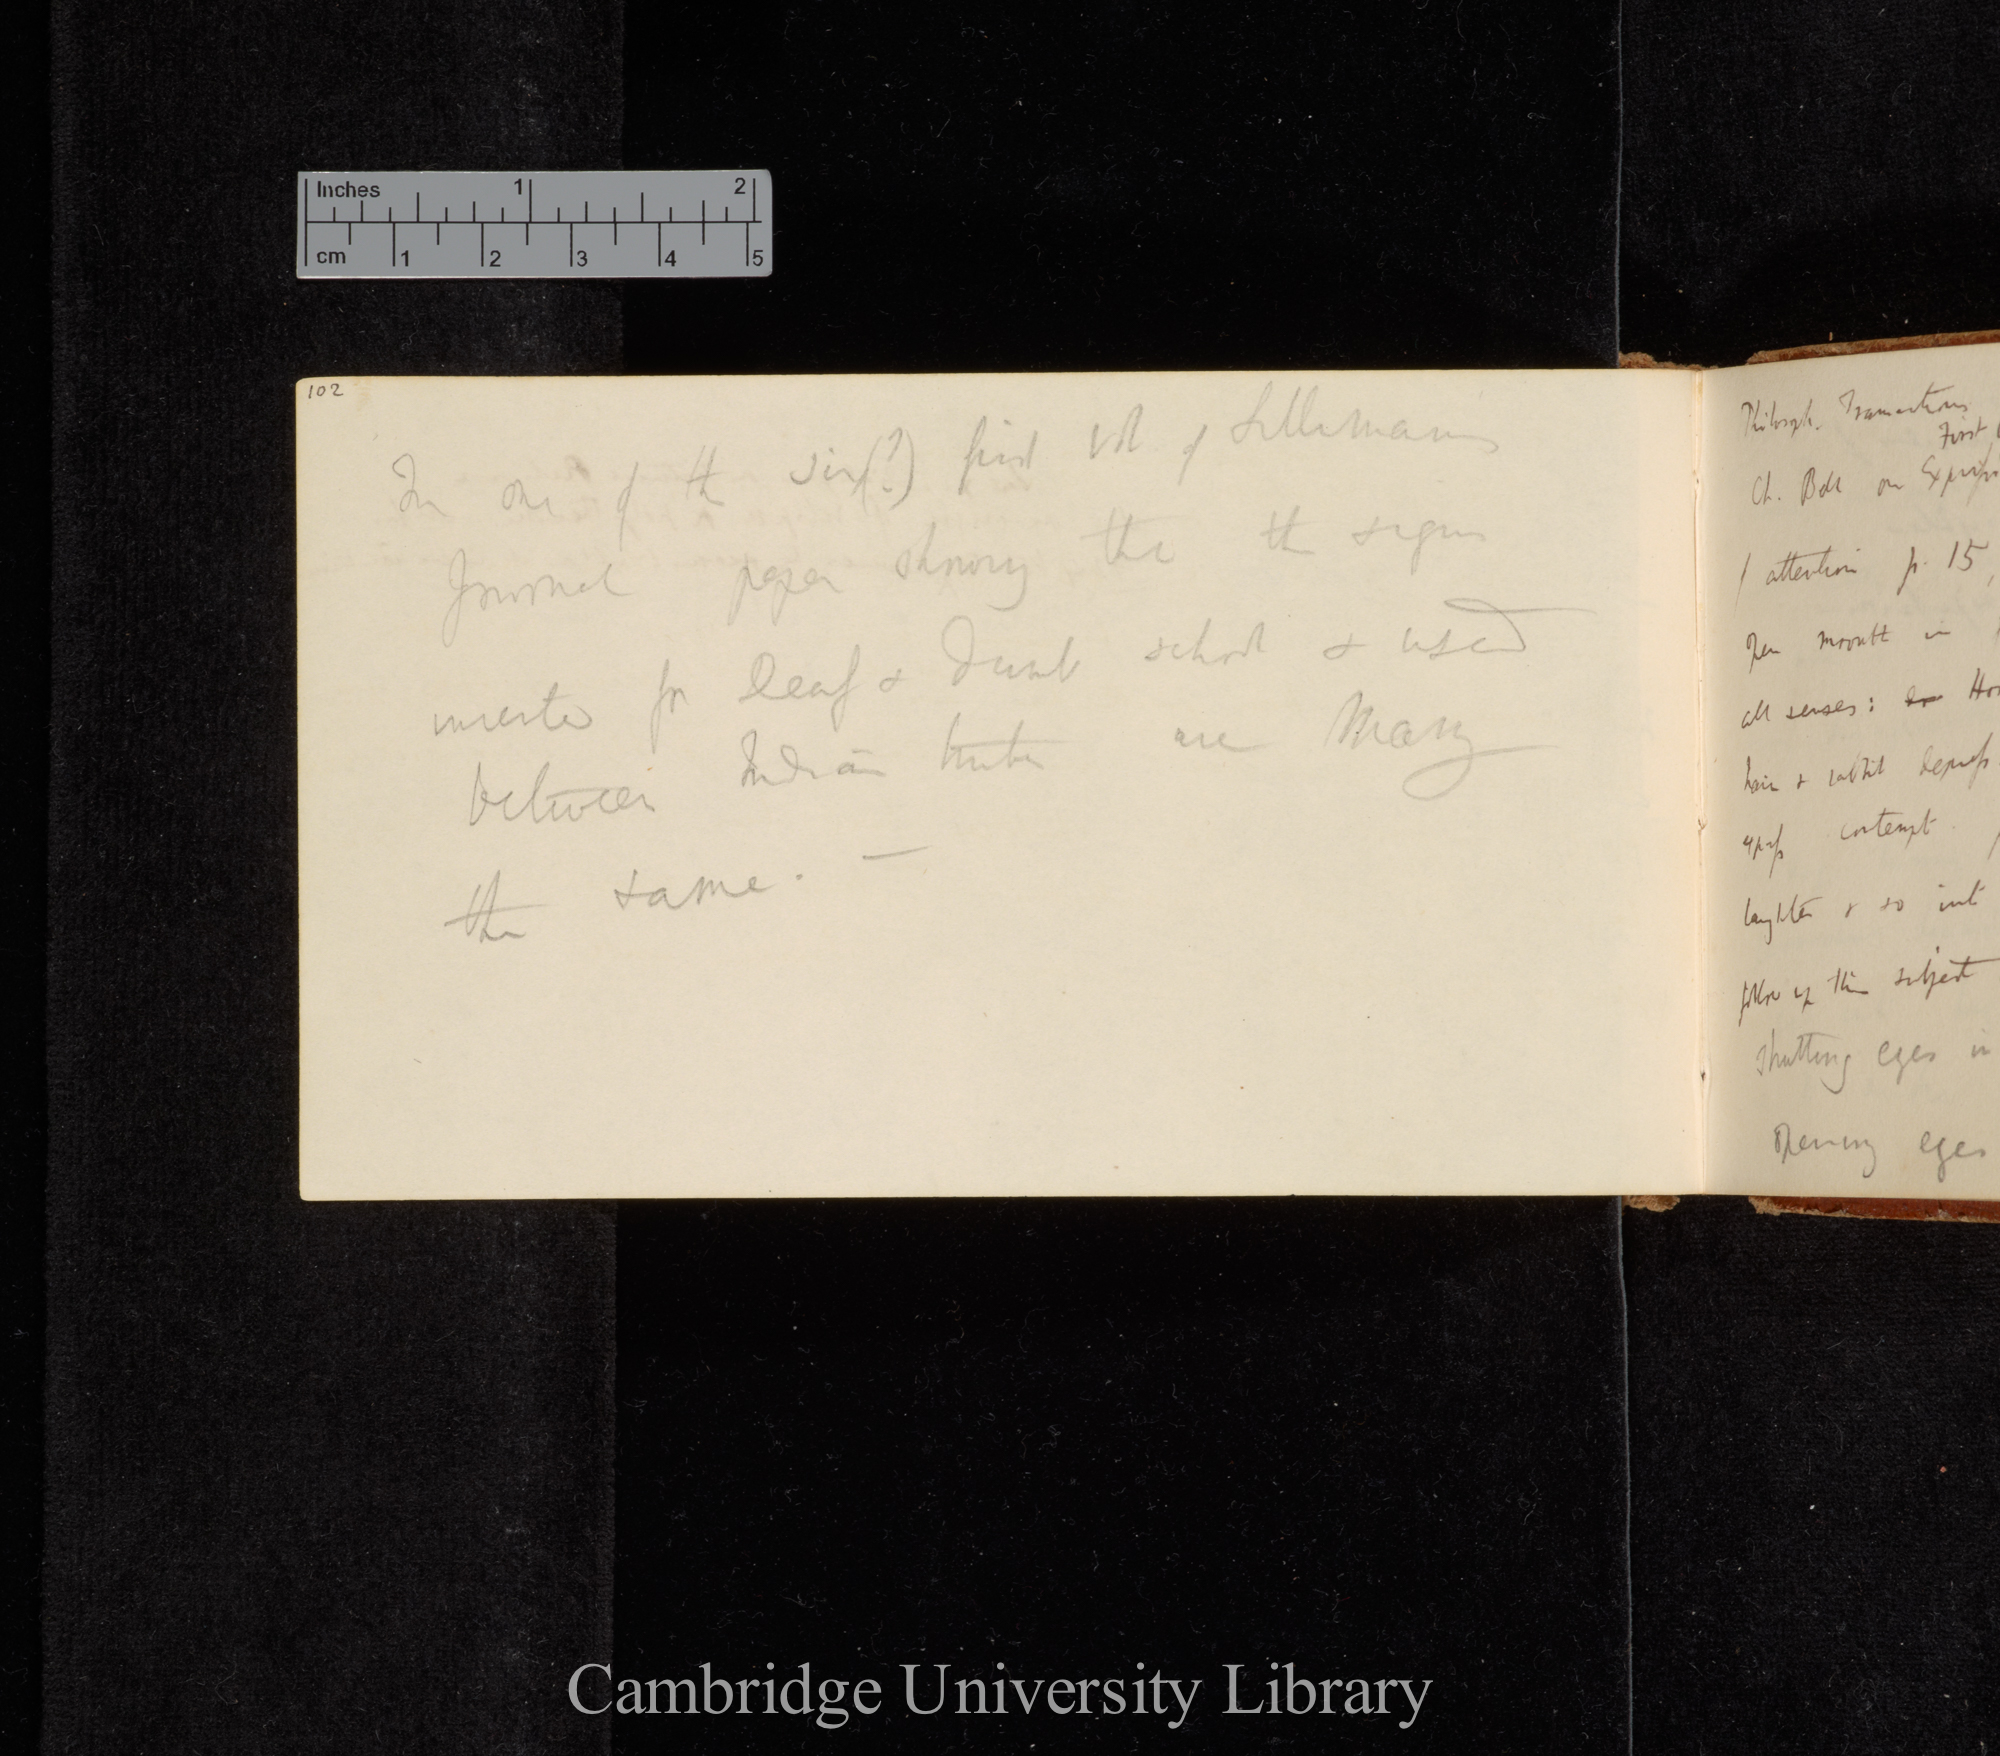 Inches 1 2
cm 1 2 3 4 5
102
In one of the six(?) first vol of Sillimans
Journal paper showing the the signs
invented for Deaf & Dumb school & used
between Indian tribes are Many
the same. —
Philosoph. Transactions
First
Ch. Bell on
attention p. 15,
Open mouth in
all senses:
hair & rabbit
contempt
laughter & so
follow up this subject
Shutting eyes in
Opening eyes
Cambridge University Library